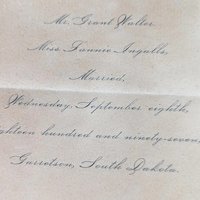 Mr. Grant Walter.
Miss. Fannie Ingalls,
Married,
Wednesday, September eighth,
eighteen hundred and ninety-seven,
Garretson, South Dakota.